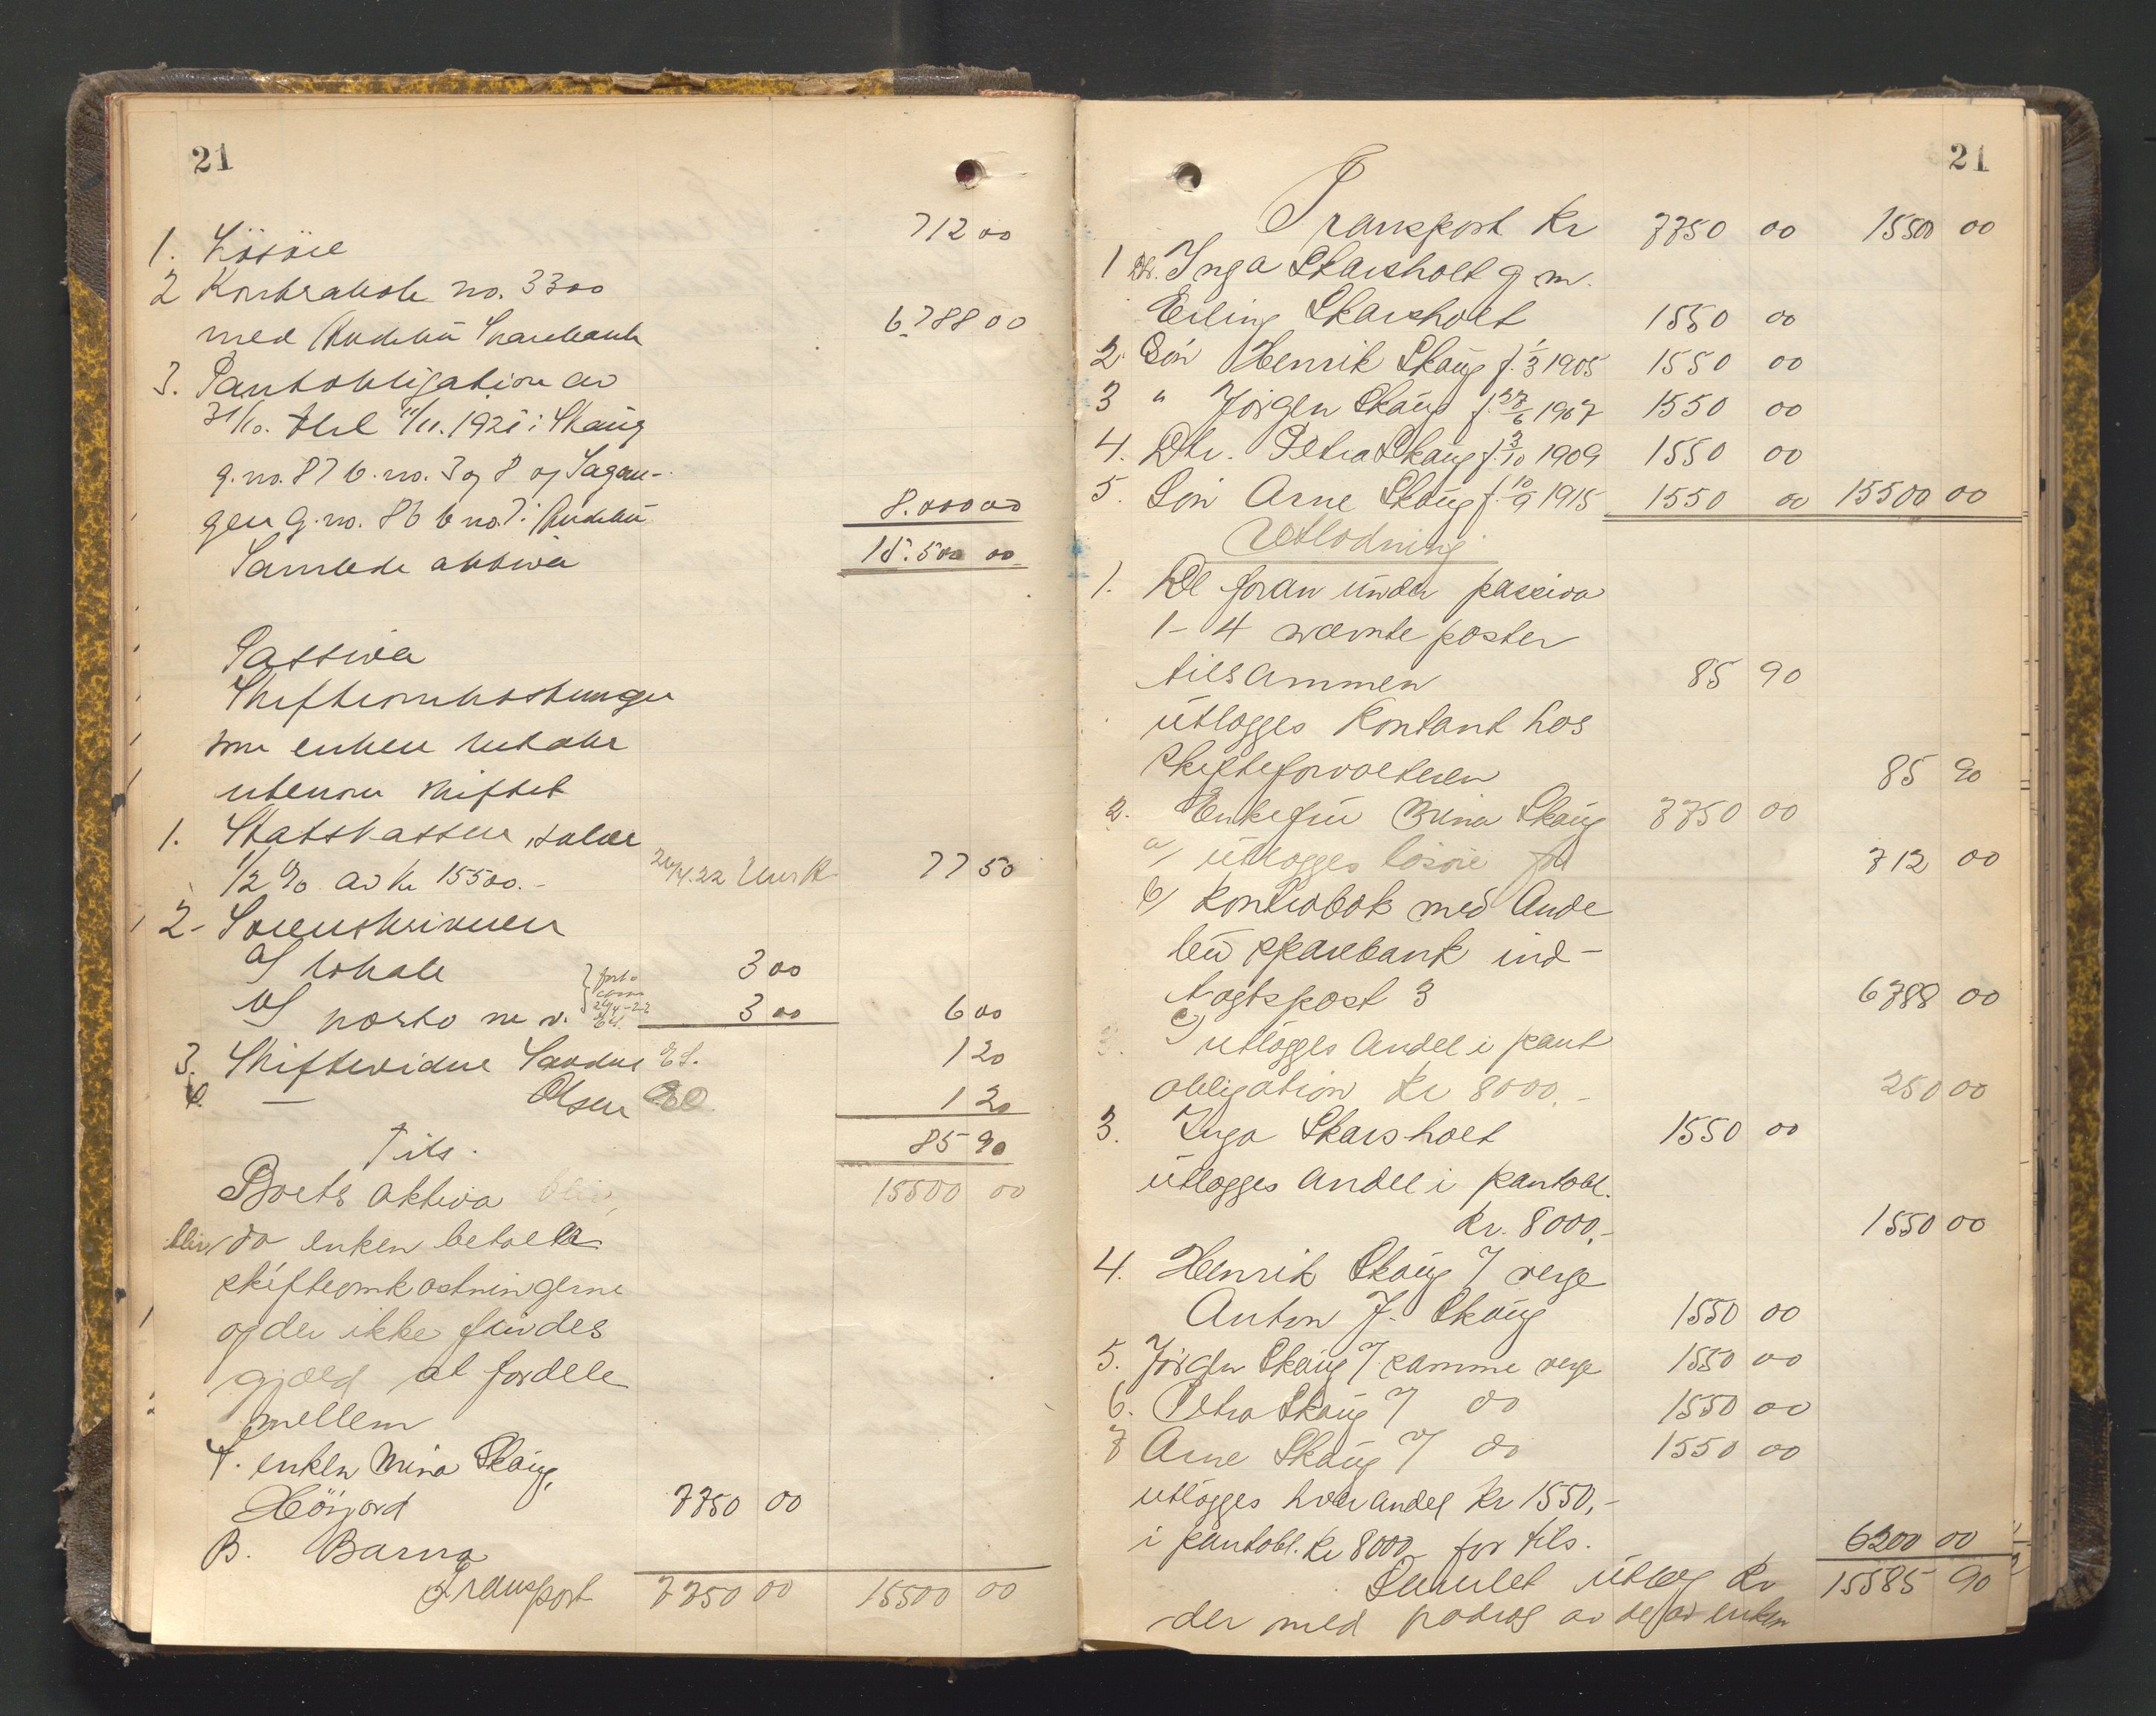 21
1. Lösöre 712 00
2 Kontrabok no. 3300
med Andebu Sparebank 6.788 00
3. Pantobligation av
31/10. thl 11/11. 1921 i Skaug
g.no. 87 b.no. 3 og 8 og Sagen-
gen g.no. 86 b no 7 i Andebu 8.000 00
Samlede aktiva 15.500 00
Passiva
Skifteomkostninger
som enken betaler
utenom skiftet
1. Statskassen, halve
1/2 % av kr 15500.- 77 50
2- Sorenskriveren
a) lokale 3 00
b) porto m v. 3 00 6 00
3. Skiftevidne 1 20
4. — Olsen 1 20
Tils. 85 90
Boets aktiva 15500 00
blir, da enken betaler
skifteomkostningerne
og der ikke findes
gjæld at fordele
mellem
A. enken Mina Skaug,
Höijord 7750 00
B. Barna
Transport 7750 00 15500 00
21
Transport kr 7750 00 15500 00
1 Dtr. Inga Skarsholt g m.
Erling Skarsholt 1550 00
2. Sön Henrik Skaug f. 1/3 1905 1550 00
3 " Jörgen Skaug f. 27/6 1907 1550 00
4. Dtr. Petra Skaug f. 2/10 1909 1550 00
5. Sön Arne Skaug f. 10/9 1915 1550 00 15500 00
Utlodning
1. De foran under passiva
1-4 nævnte poster
tilsammen 85 90
utlægges kontant hos
skifteforvalteren 85 90
2. Enkefru Mina Skaug 7750 00
a) utlægges lösöre for 712 00
b) kontrabok med Ande
bu sparebank ind-
tægtspost 3 6788 00
c) utlægges andel i pant
obligation kr 8000.- 250 00
3. Inga Skarsholt 1550 00
utlægges andel i pantobl.
kr. 8000.- 1550 00
4. Henrik Skaug v/ verge
Anton J. Skaug 1550 00
5. Jörgen Skaug v/ samme verge 1550 00
6. Petra Skaug v/ do 1550 00
7 Arne Skaug v/ do 1550 00
utlægges hver andel kr 1550,-
i pantobl. kr 8000 for tils. 6200 00
Samlet utlæg kr 15585 90
der med fradrag av de av enken